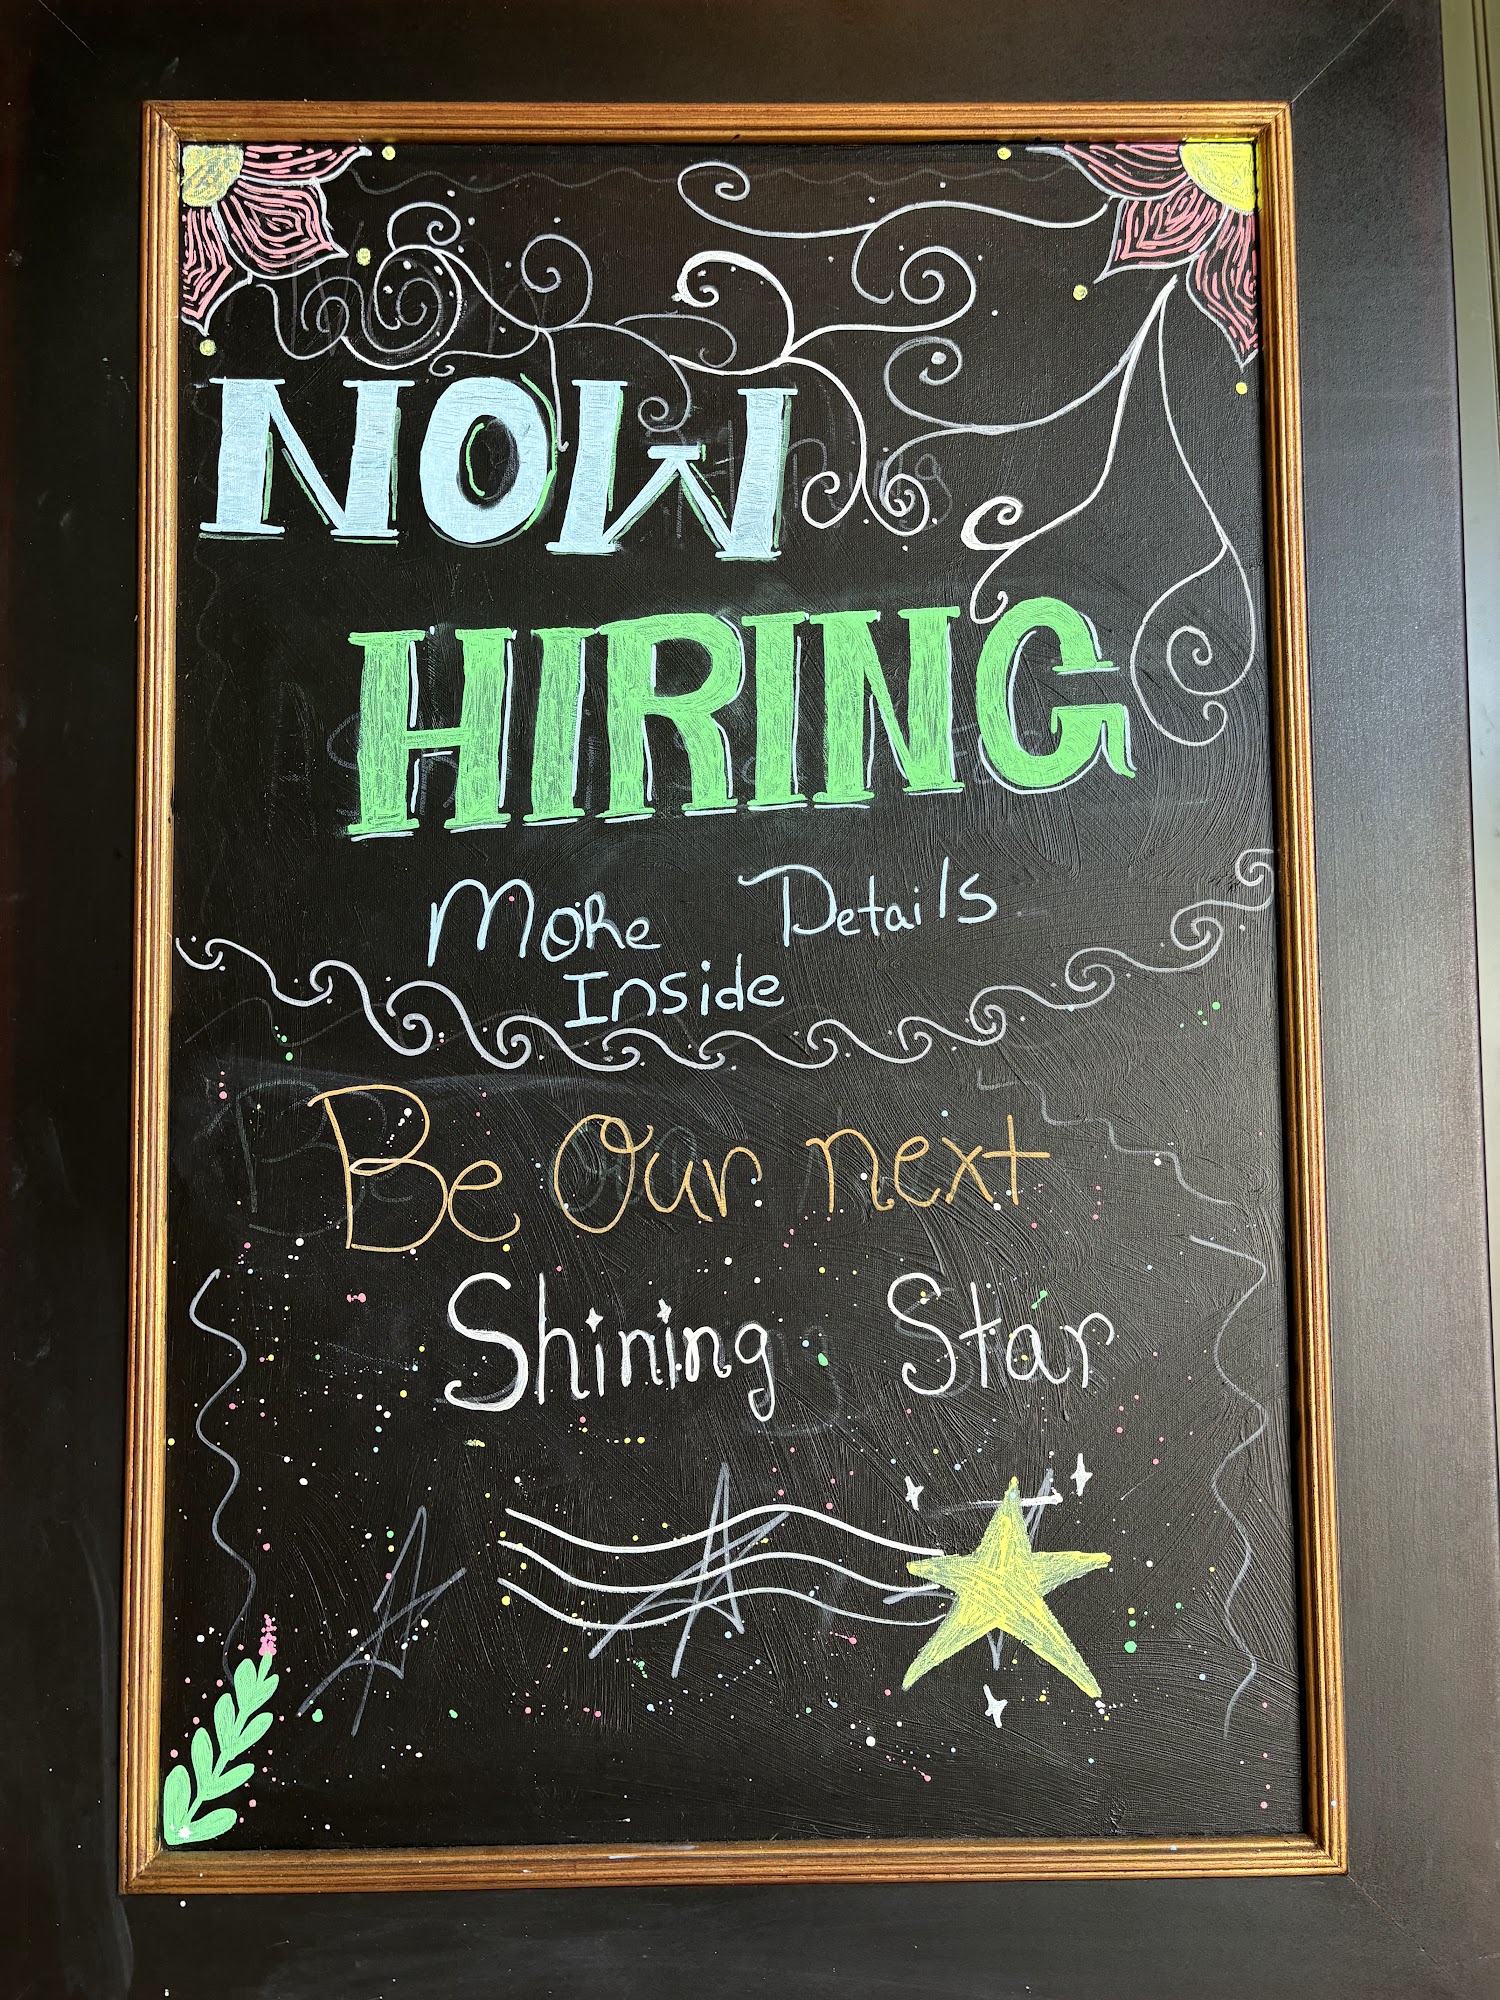 NOW
HIRING
More Details
Inside
Be Our next
Shining Star